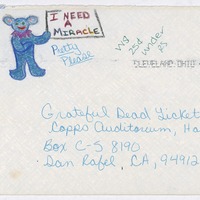 I NEED
A MIRACLE
Pretty
Please
CLEVELAND OHIO
Grateful Dead Ticket
Capps Auditorium, Ha
Box C-S 8190
San Rafel, CA, 94912